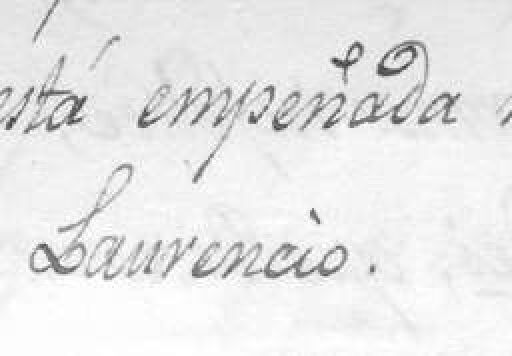 está empeñada
Laurencio.